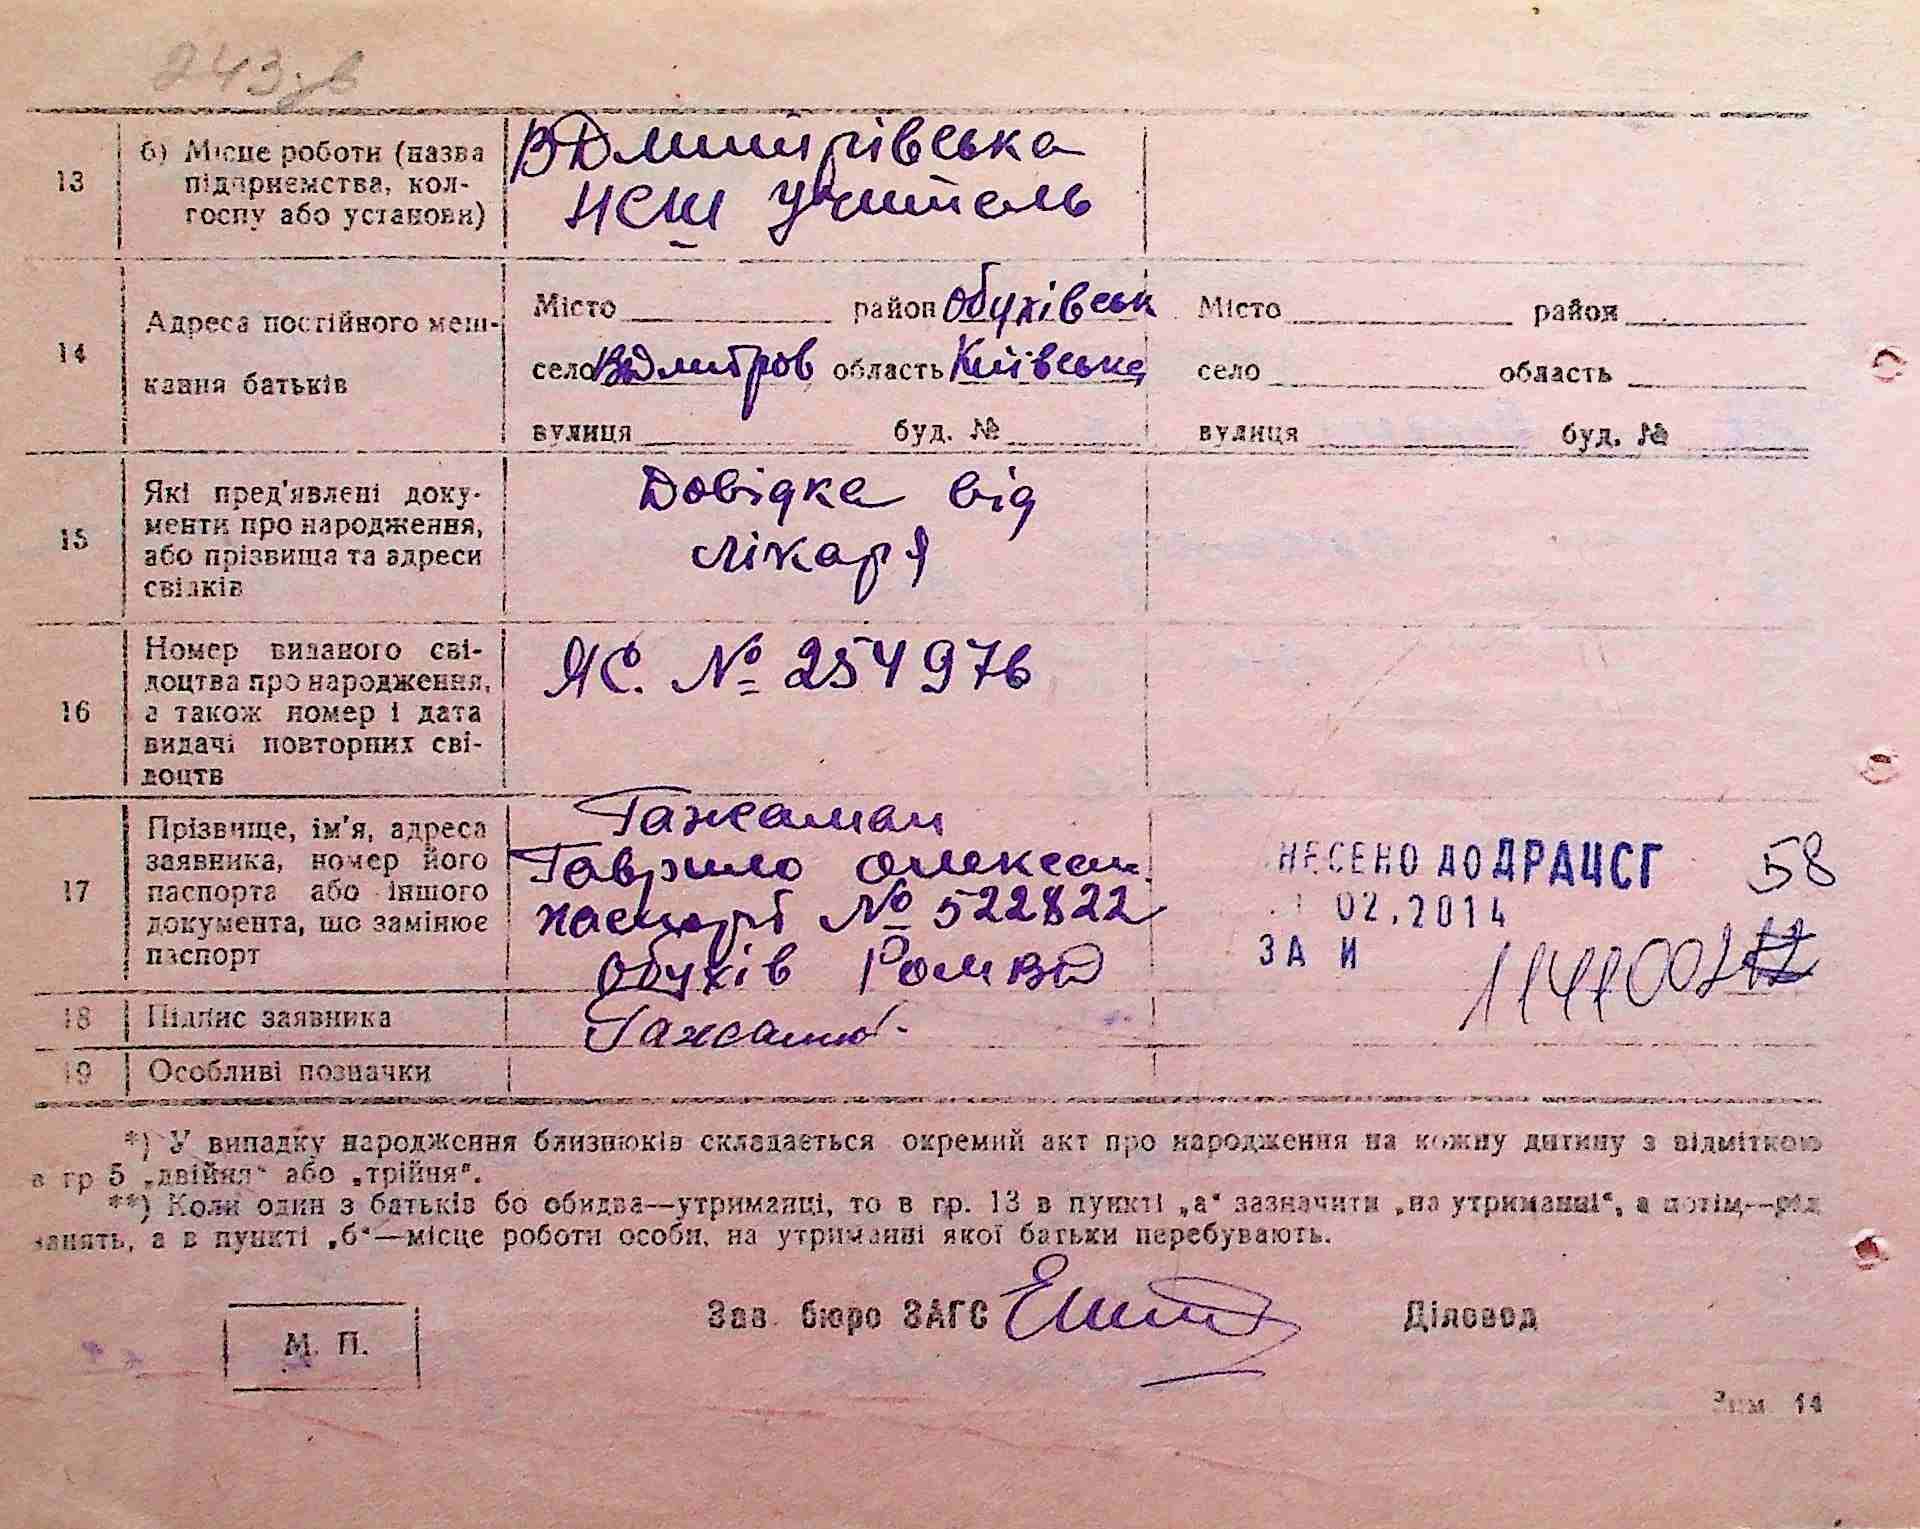 243
13
б) Місце роботи (назва
підприємства, кол-
госпу або установи)
ВДмитрівська
НСШ учитель
14
Адреса постійного меш-
кання батьків
Місто район Обухівськ
село ВДмитров область Київська
вулиця буд. №
Місто район
село область
вулиця буд. №
15
Які пред'явлені доку-
менти про народження,
або прізвища та адреси
свідків
Довідка від
лікаря
16
Номер виданого сві-
доцтва про народження,
а також номер і дата
видачі повторних сві-
доцтв
ЯС. № 254976
17
Прізвище, ім'я, адреса
заявника, номер його
паспорта або іншого
документа, що замінює
паспорт
Гажаман
Гаврило Олексан.
паспорт № 522822
Обухів РОМВД
НЕСЕНО ДО ДРАЦСГ 58
02.2014
ЗА И
18
Підпис заявника
19
Особливі позначки
*) У випадку народження близнюків складається окремий акт про народження на кожну дитину з відміткою
в гр 5 „двійня“ або „трійня“.
**) Коли один з батьків бо обидва—утриманці, то в гр. 13 в пункті „а“ зазначити „на утриманні“, а потім—рід
занять, а в пункті „б“—місце роботи особи, на утриманні якої батьки перебувають.
М. П.
Зав. бюро ЗАГС
Діловод
Зам. 14